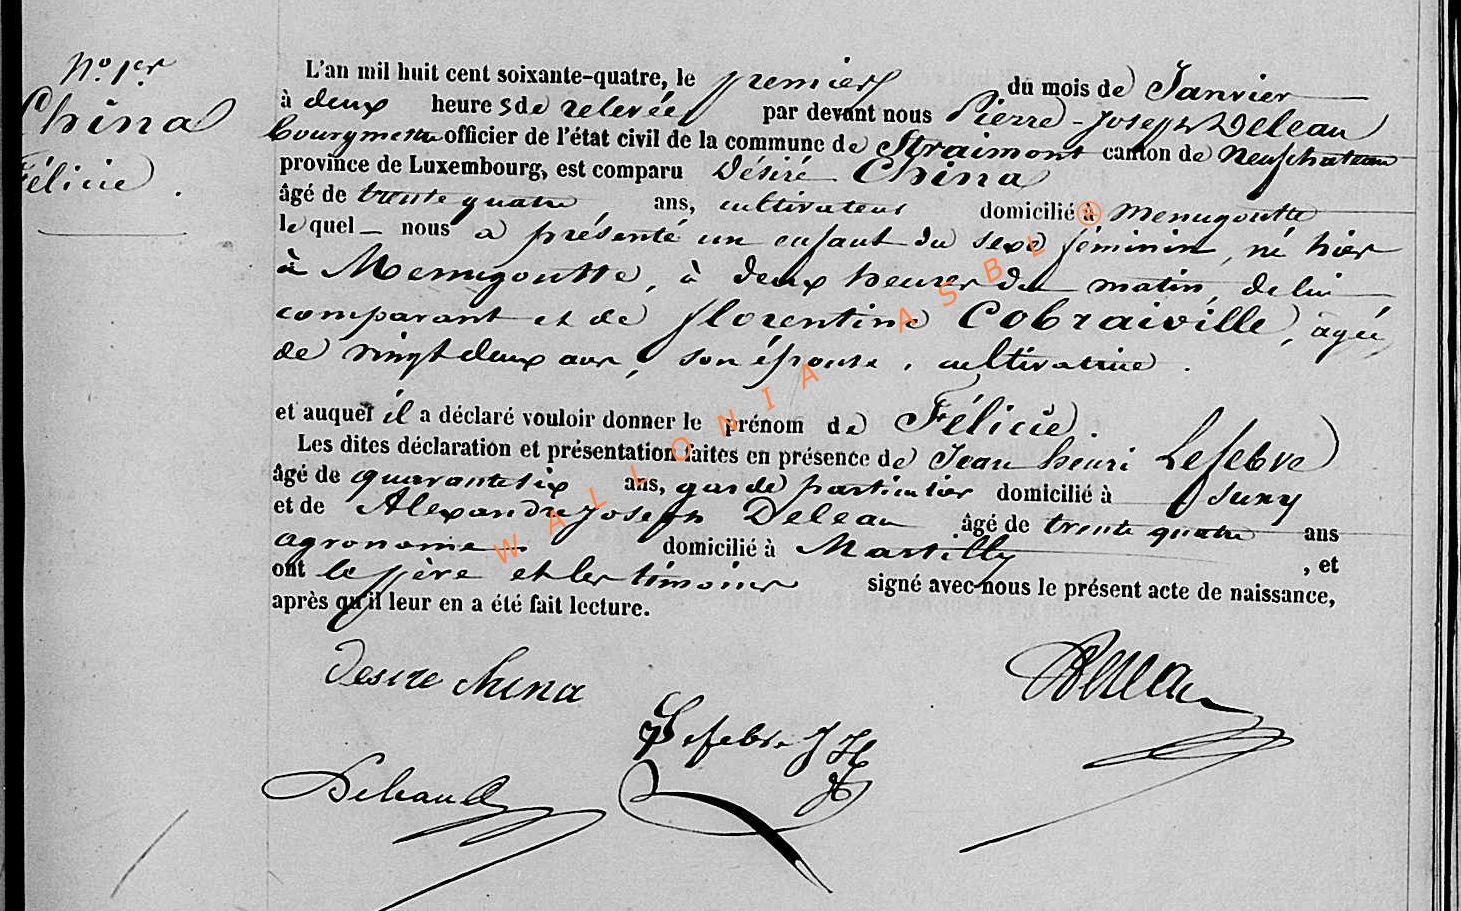 N° 1er
China
Félicie.
L'an mil huit cent soixante-quatre, le premier du mois de Janvier
à deux heures de relevée par devant nous Pierre-Joseph Deleau
bourgmestre officier de l'état civil de la commune de Straimont canton de Neufchateau
province de Luxembourg, est comparu Désiré China
âgé de trente quatre ans, cultivateur domicilié à Menugoutte
lequel nous a présenté un enfant du sexe féminin, né hier
à Menugoutte, à deux heures du matin, de lui
comparant et de florentine Cobraiville, agée
de vingt deux ans, son épouse, cultivatrice.
et auquel il a déclaré vouloir donner le prénom de Félicie.
Les dites déclaration et présentation faites en présence de Jean henri Lefebve
âgé de quarante six ans, garde particulier domicilié à Suxy
et de Alexandre joseph Deleau âgé de trente quatre ans
agronome domicilié à Martilly, et
ont le père et les témoins signé avec nous le présent acte de naissance,
après qu'il leur en a été fait lecture.
desire china
Deleau
Lefebve J H
Deleau
WALLONIA ASBL ®